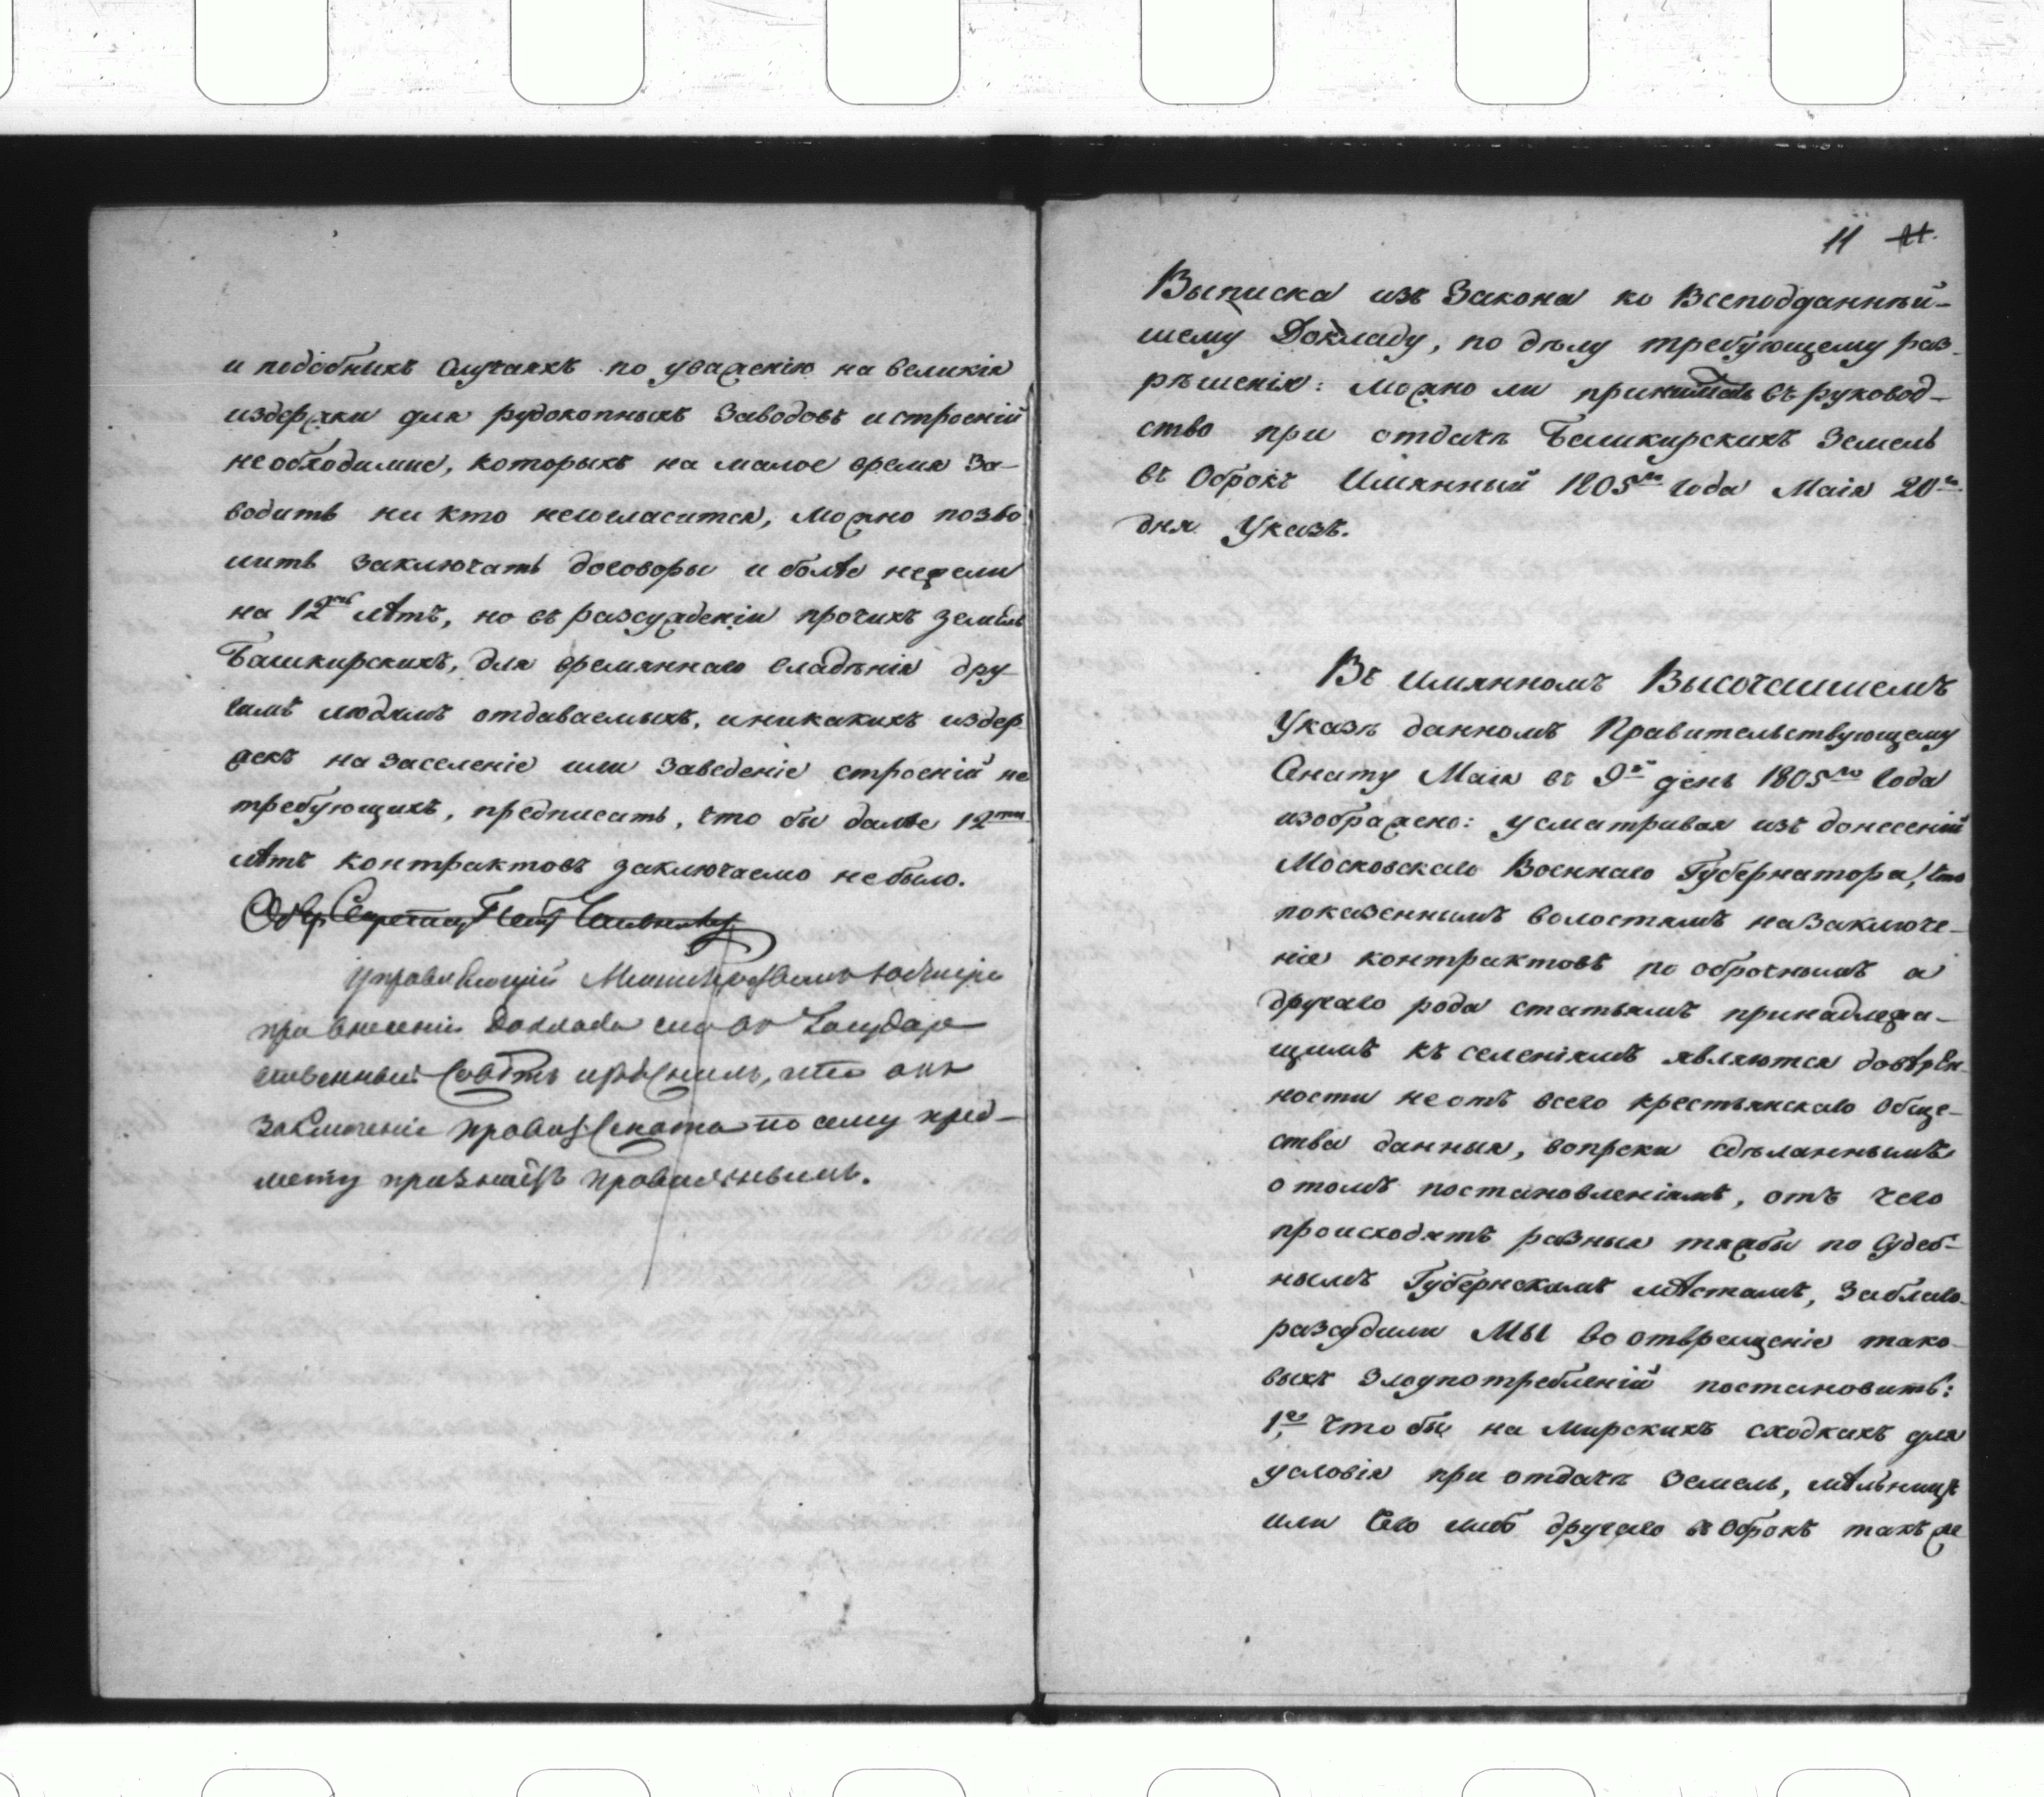 и подобныхъ случаяхъ по уваженію на великія
издержки для рудокопныхъ заводовъ и строеній
необходимые, которыхъ на малое время за-
водить ни кто несогласится, можно позво
лить заключать договоры и болѣе нежели
на 12ть лѣтъ, но въ разсужденіи прочихъ земель
Башкирскихъ, для времяннаго владѣнія дру
гимъ людямъ отдаваемыхъ, и никакихъ издер
жекъ на заселеніе или заведеніе строеній не
требующихъ, предписать, что бы далѣе 12ти
лѣтъ контрактовъ заключаемо небыло.
Обер Секретарь Петр
управляющій Министерствомъ Юстиціи
при внесеніи доклада сего въ Государ
ственный Совѣтъ изъяснилъ, что онъ
заключеніе Правит. Сената по сему пред-
мету признаетъ правильнымъ.
11 11.
Выписка изъ Закона ко Всеподданнѣй-
шему Докладу, по дѣлу требующему раз-
рѣшенія: можно ли принимать въ руковод-
ство при отдачѣ Башкирскихъ Земель
въ Оброкъ Имянный 1805го года Маія 20го
дня Указъ.
Въ имянномъ Высочайшемъ
Указѣ данномъ Правительствующему
Сенату Маія въ 9й день 1805го года
изображено: усматривая изъ донесеній
Московскаго Военнаго Губернатора, что
показеннымъ волостямъ на заключе-
ніе контрактовъ по оброчнымъ а
другаго рода статьямъ принадлежа-
щимъ къ селеніямъ являются довѣрен-
ности не отъ всего крестьянскаго Обще-
ства данныя, вопреки сдѣланнымъ
о томъ постановленіямъ, отъ чего
происходятъ разныя тяжбы по Судеб-
нымъ Губернскимъ мѣстамъ, за благо-
разсудили МЫ во отвращеніе тако-
выхъ злоупотребленій постановить:
1е, что бы на мирскихъ сходкахъ для
условія при отдачѣ земель, мѣльницъ
или чего либо другаго въ Оброкъ такъ же